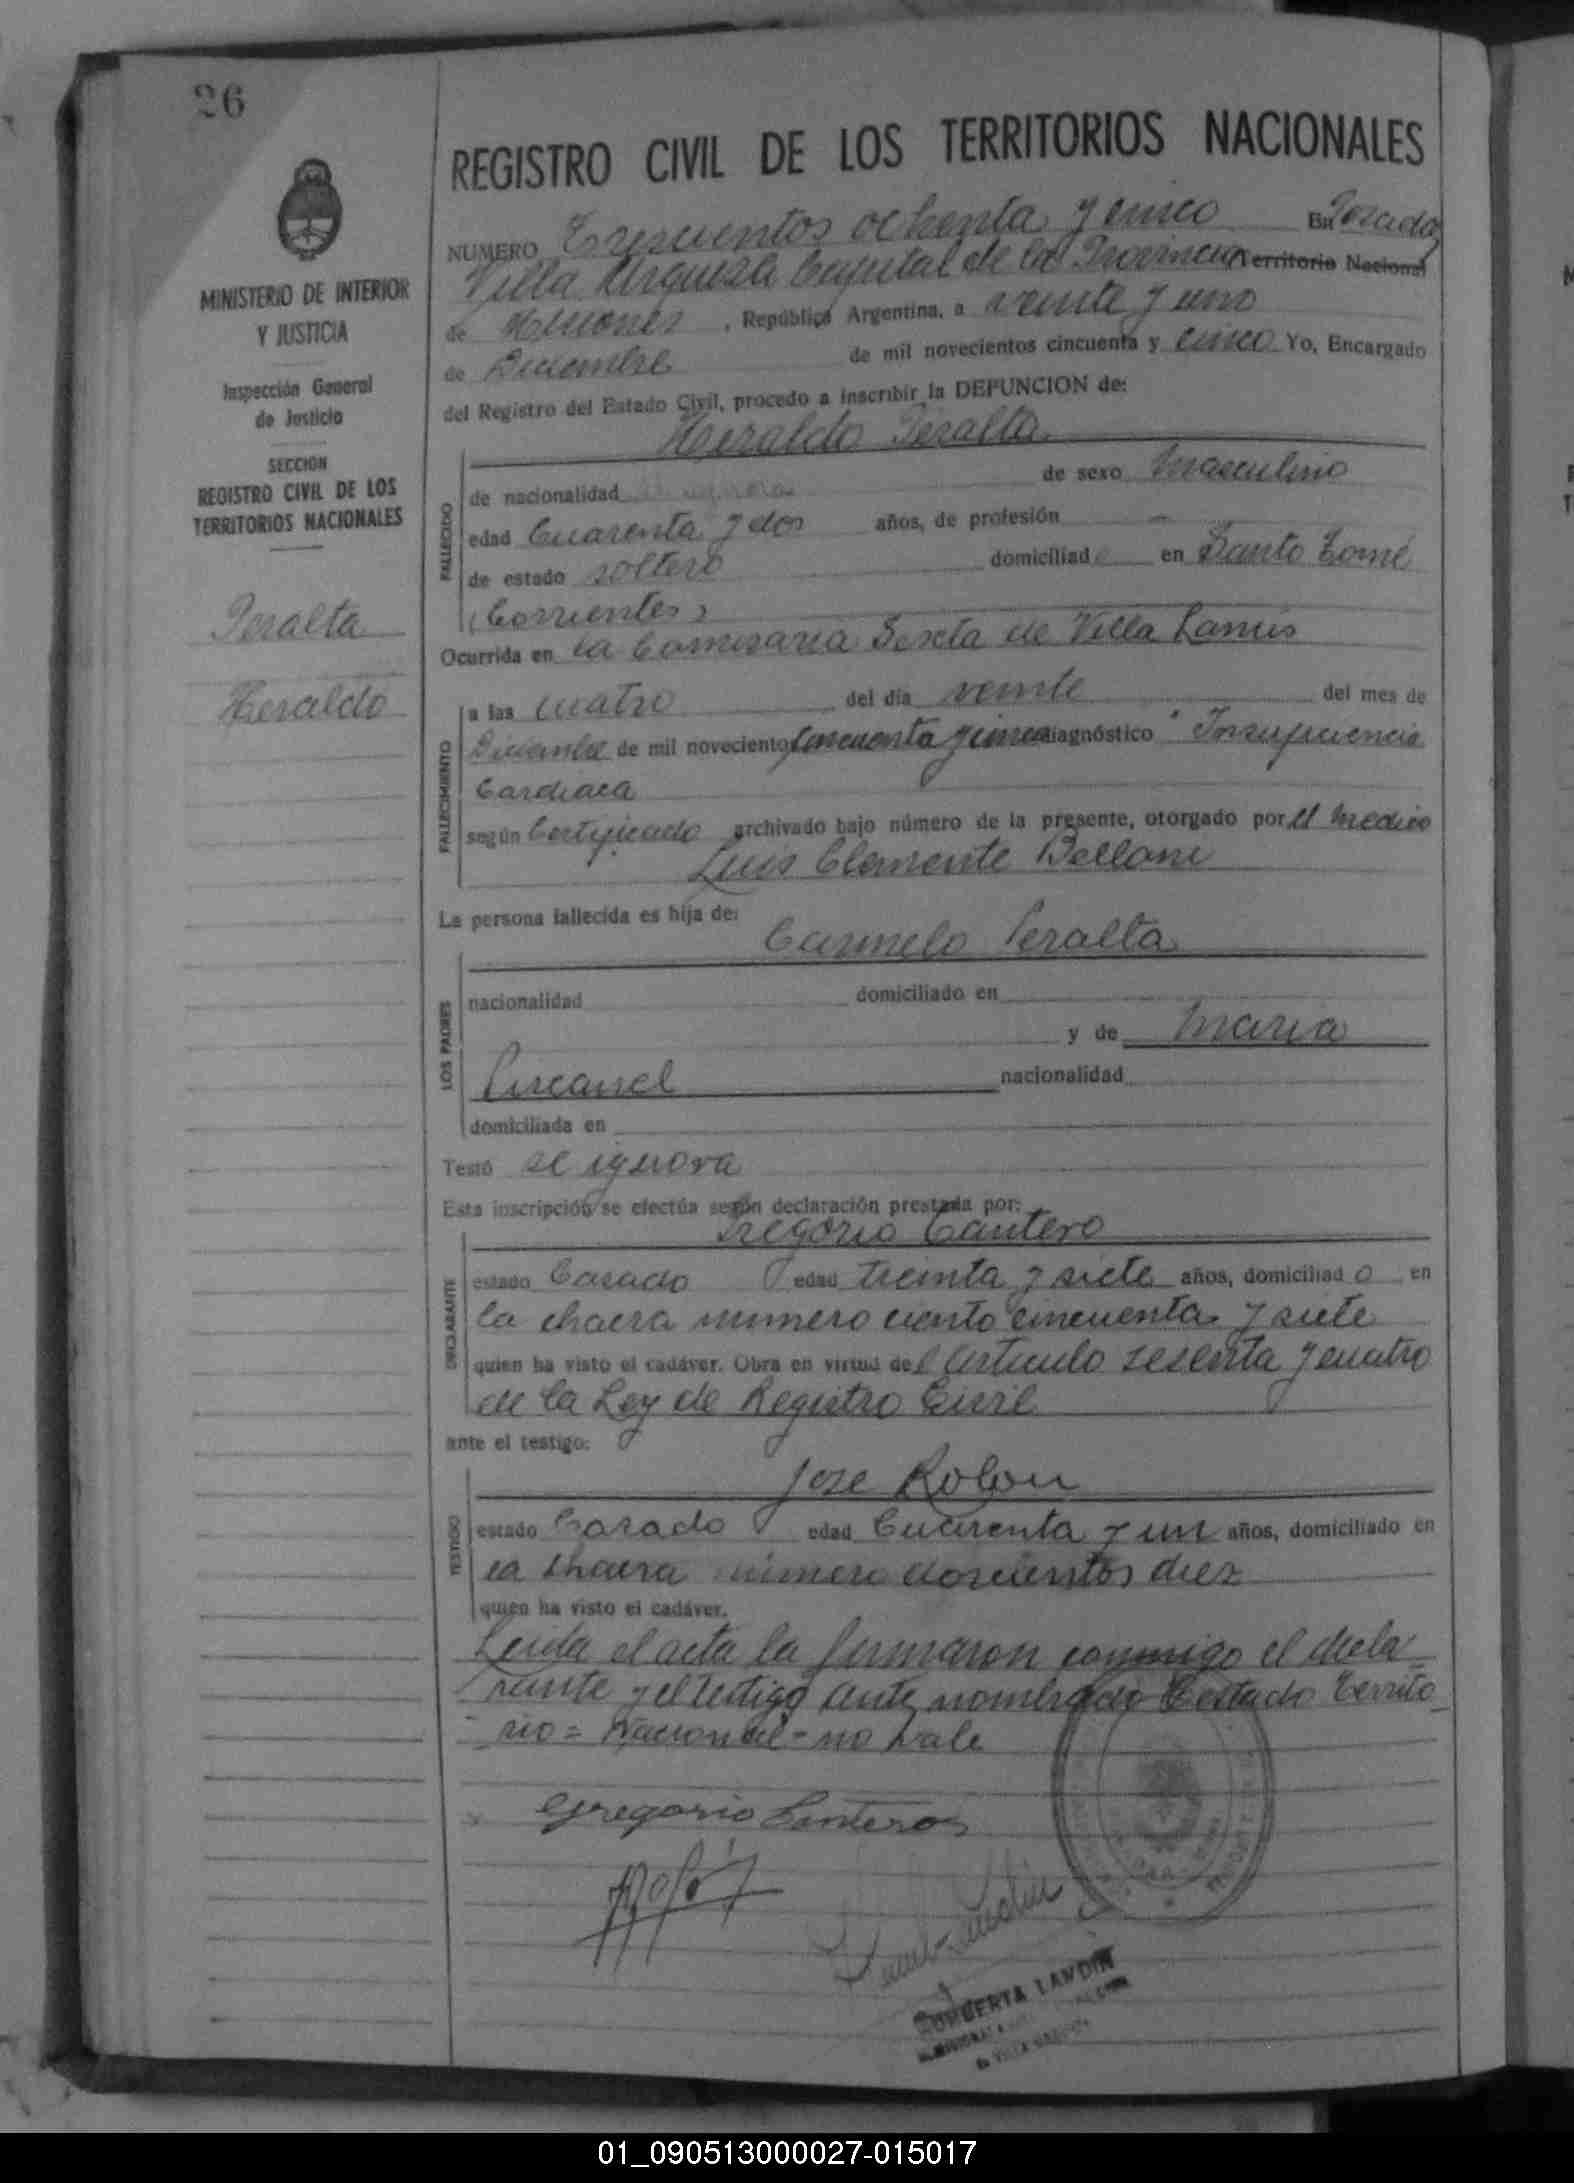 26
REGISTRO CIVIL DE LOS TERRITORIOS NACIONALES
NUMERO Trescientos ochenta y cinco En Posadas
Villa Urquiza Capital de la Provincia Territorio Nacional
de Misiones, República Argentina, a veinte y uno
de Diciembre de mil novecientos cincuenta y cinco Yo, Encargado
del Registro del Estado Civil, procedo a inscribir la DEFUNCION de:
Heraldo Peralta
MINISTERIO DE INTERIOR
Y JUSTICIA
Inspección General
de Justicia
SECCION
REGISTRO CIVIL DE LOS
TERRITORIOS NACIONALES
Peralta
Heraldo
FALLECIDO
de nacionalidad de sexo Masculino
edad Cuarenta y dos años, de profesión -
de estado soltero domiciliado en Santo Tomé
(Corrientes)
Ocurrida en la Comisaria Sexta de Villa Lanús
FALLECIMIENTO
a las cuatro del día veinte del mes de
Diciembre de mil novecientos cincuenta y cinco diagnóstico "Insuficiencia
Cardiaca
según Certificado archivado bajo número de la presente, otorgado por el Medico
Luis Clemente Belloni
La persona fallecida es hija de:
Carmelo Peralta
LOS PADRES
nacionalidad domiciliado en
y de Maria
nacionalidad
domiciliada en
Testó se ignora
Esta inscripción se efectúa según declaración prestada por:
Gregorio Cantero
DECLARANTE
estado Casado edad treinta y siete años, domiciliado en
la chacra numero ciento cincuenta y siete
quien ha visto el cadáver. Obra en virtud del Articulo sesenta y cuatro
de la Ley de Registro Civil
ante el testigo:
Jose Rolon
TESTIGO
estado Casado edad Cuarenta y un años, domiciliado en
la chacra número doscientos diez
quien ha visto el cadáver.
Leida el acta la firmaron conmigo el decla
rante y el testigo ante nombrado Testado Territo
rio = Nacional - no vale
Gregorio Canteros
Rolón
HUMBERTA LANDIN
01_090513000027-015017